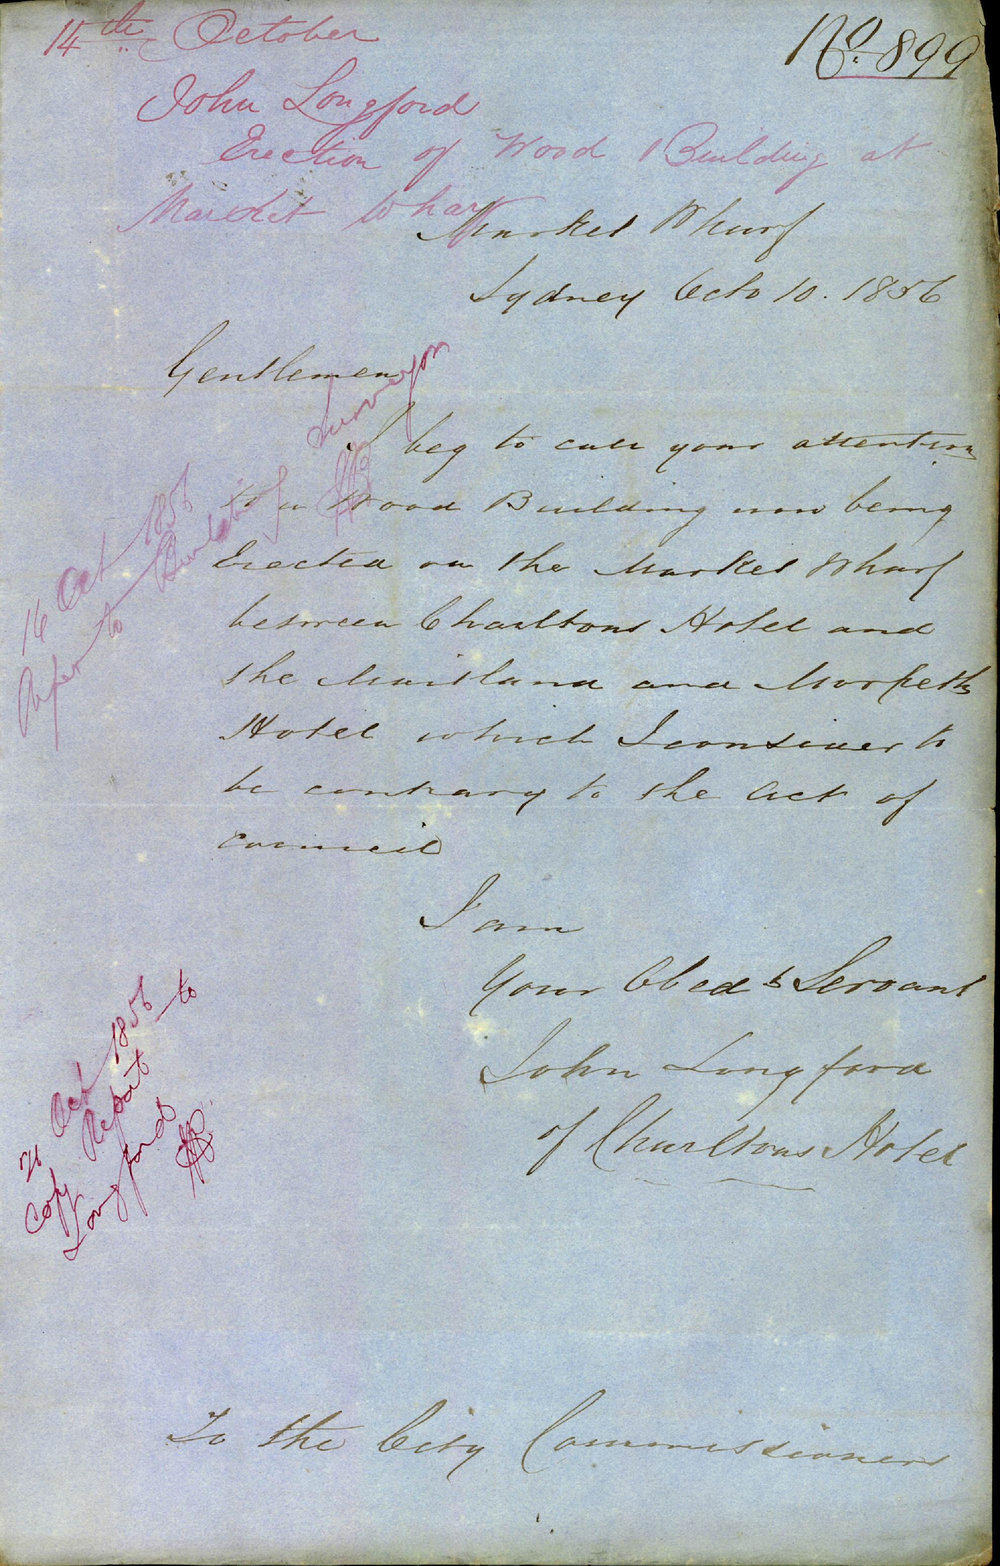 No. 899
14th October
John Longford
Erection of Wood Building at
Market Wharf
Market Wharf
Sydney Octo 10. 1856
Gentlemen
I beg to call your attention
to a Wood Building now being
Erected on the Market Wharf
between Charltons Hotel and
the Maitland and Morpeth
Hotel which I consider to
be contrary to the Act of
council
I am
Your Obedt Servant
John Longford
of Charltons Hotel
To the City Commissioners
16 Oct 1856
Refer to Building Surveyor
21 Oct 1856
Copy Report to
Longford